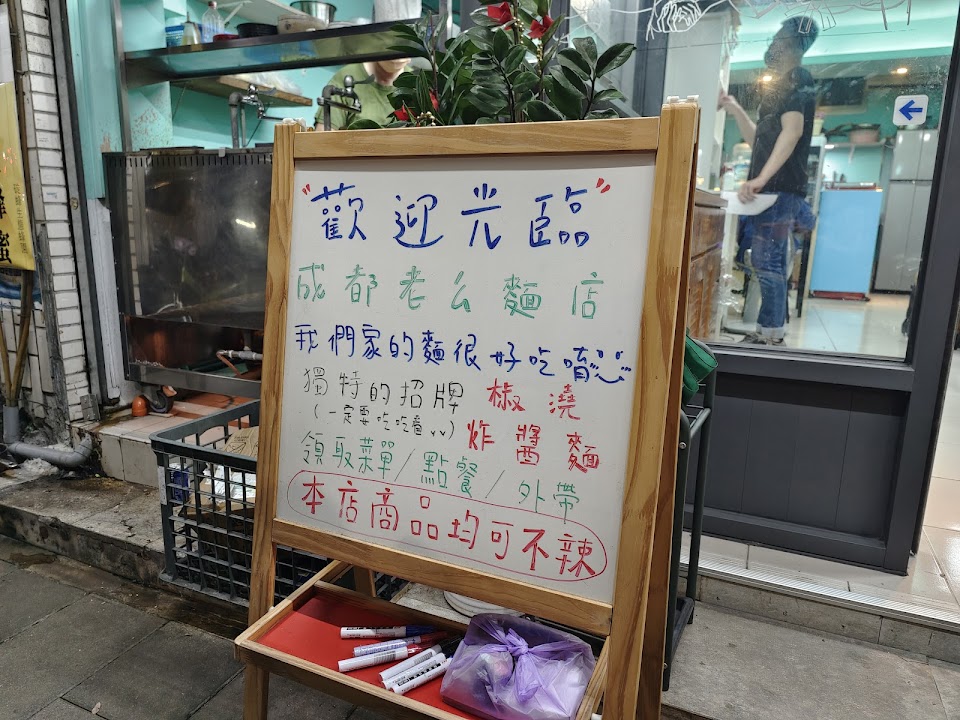 "歡迎光臨"
成都老么麵店
我們家的麵很好吃唷
獨特的招牌 椒澆
(一定要吃吃看) 炸醬麵
領取菜單/點餐/外帶
本店商品均可不辣
蜜